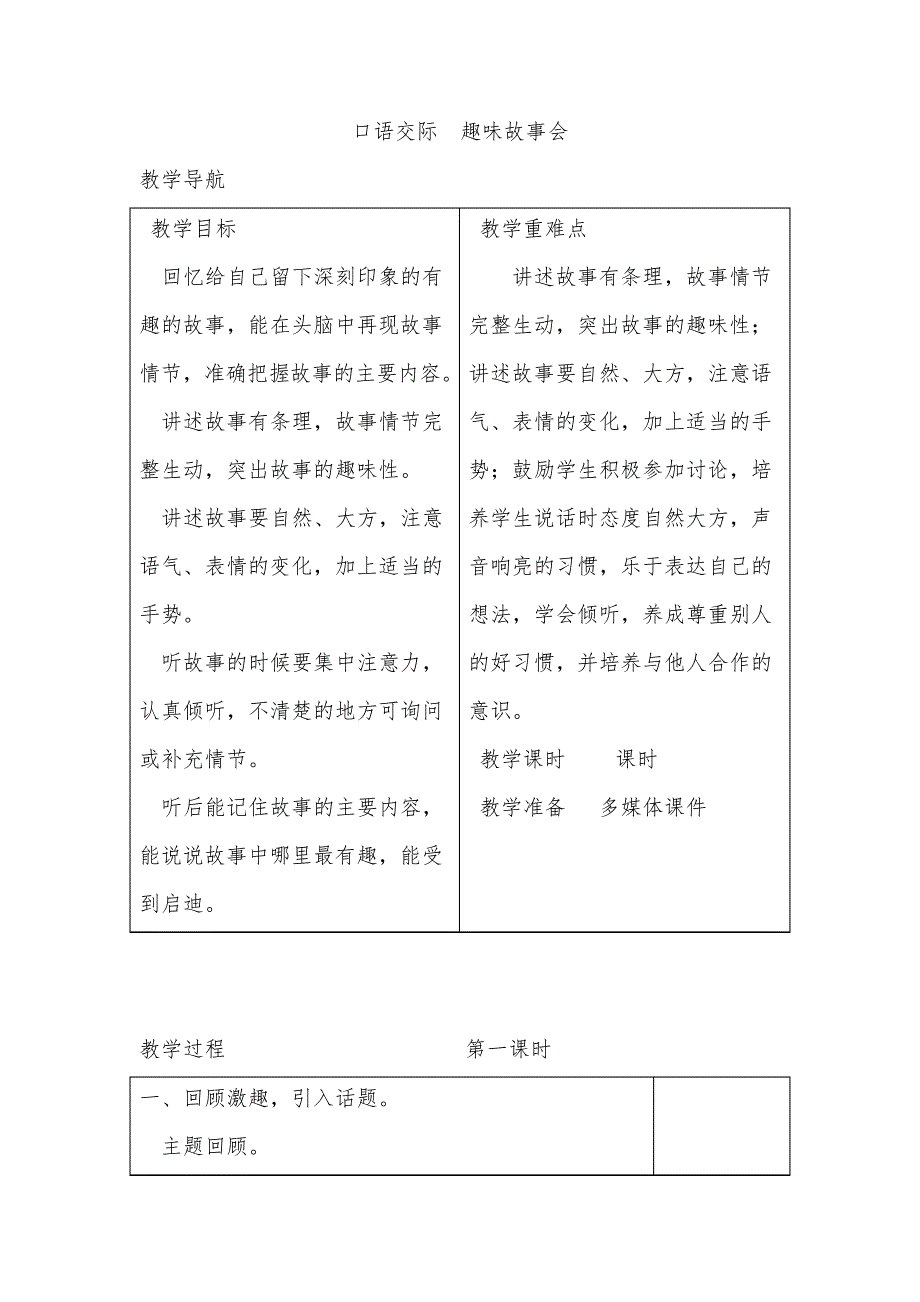 口语交际　趣味故事会
教学导航
教学目标
回忆给自己留下深刻印象的有
趣的故事，能在头脑中再现故事
情节，准确把握故事的主要内容。
讲述故事有条理，故事情节完
整生动，突出故事的趣味性。
讲述故事要自然、大方，注意
语气、表情的变化，加上适当的
手势。
听故事的时候要集中注意力，
认真倾听，不清楚的地方可询问
或补充情节。
听后能记住故事的主要内容，
能说说故事中哪里最有趣，能受
到启迪。
教学重难点
讲述故事有条理，故事情节
完整生动，突出故事的趣味性；
讲述故事要自然、大方，注意语
气、表情的变化，加上适当的手
势；鼓励学生积极参加讨论，培
养学生说话时态度自然大方，声
音响亮的习惯，乐于表达自己的
想法，学会倾听，养成尊重别人
的好习惯，并培养与他人合作的
意识。
教学课时　　课时
教学准备　多媒体课件
教学过程　　第一课时
一、回顾激趣，引入话题。
主题回顾。